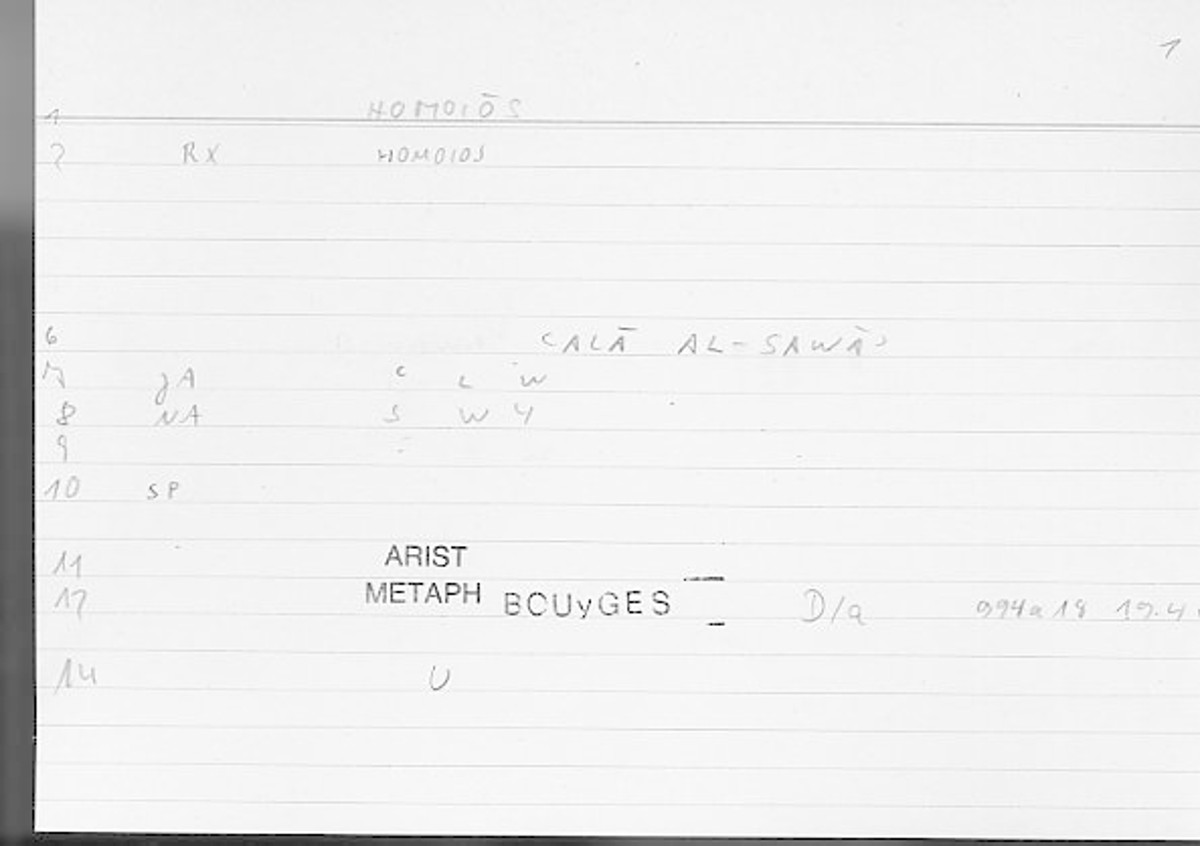 1
1 HOMOIŌS
2 RX HOMOIOS
6 ʿALĀ AL-SAWĀʾ
7 JA ʿ L W
8 NA S W Y
9
10 SP
11 ARIST
12 METAPH BOUyGES D/a 994a18 19.4
14 U